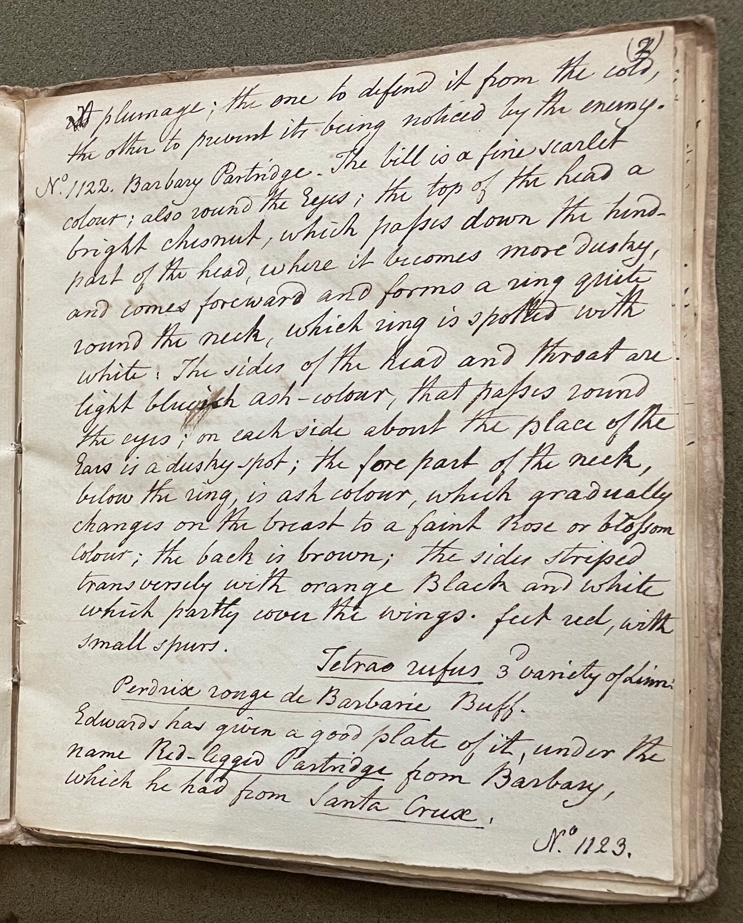 (2)
its plumage; the one to defend it from the cold,
the other to prevent its being noticed by the enemy.
No. 1122. Barbary Partridge. The bill is a fine scarlet
colour; also round the Eyes; the top of the head a
bright chesnut, which passes down the hind-
part of the head, where it becomes more dusky,
and comes foreward and forms a ring quite
round the neck, which ring is spotted with
white: The sides of the head and throat are
light blueish ash-colour, that passes round
the eyes; on each side about the place of the
Ears is a dusky spot; the fore part of the neck,
below the ring, is ash colour, which gradually
changes on the breast to a faint Rose or blossom
colour; the back is brown; the sides striped
transversely with orange Black and white
which partly cover the wings. feet red, with
small spurs.
Tetrao rufus 3d variety of Linn:
Perdrix rouge de Barbarie Buff.
Edwards has given a good plate of it, under the
name Red-legged Partridge from Barbary,
which he had from Santa Crux.
No. 1123.